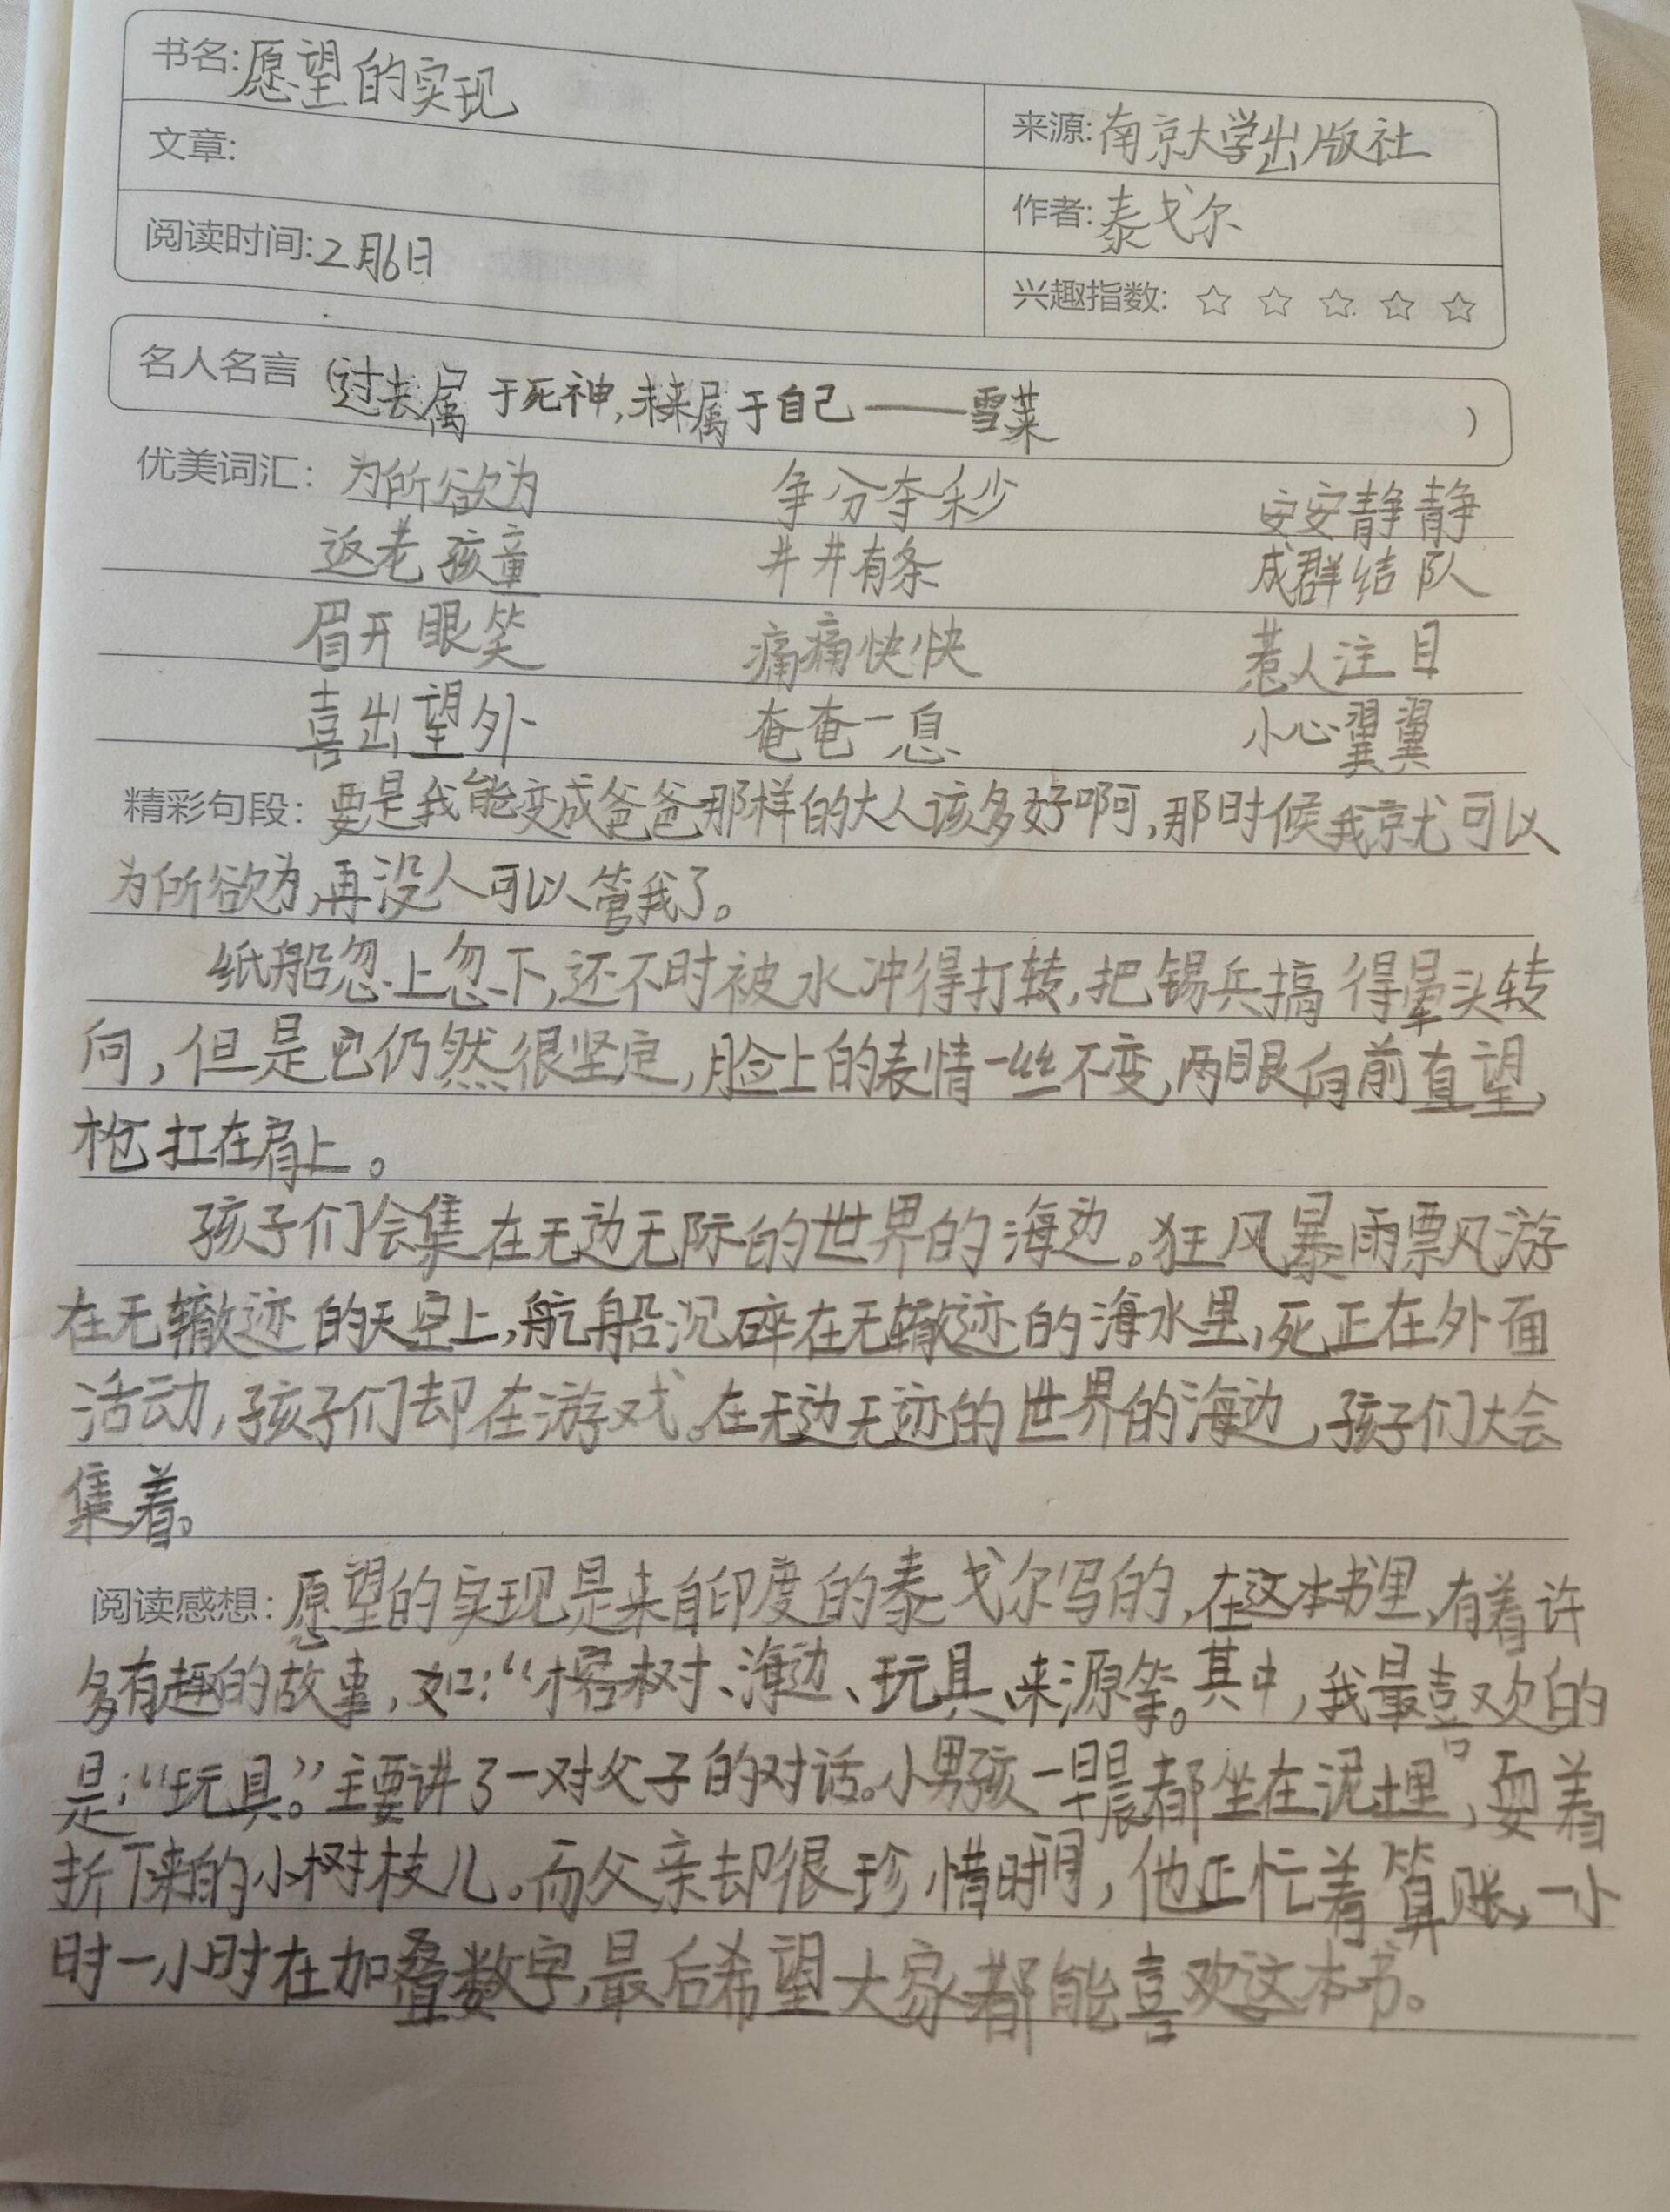 书名:愿望的实现
来源:南京大学出版社
文章:
作者:泰戈尔
阅读时间:2月6日
兴趣指数: ☆ ☆ ☆ ☆ ☆
名人名言 (过去属于死神,未来属于自己——雪莱 )
优美词汇: 为所欲为 争分夺秒 安安静静
返老孩童 井井有条 成群结队
眉开眼笑 痛痛快快 惹人注目
喜出望外 奄奄一息 小心翼翼
精彩句段: 要是我能变成爸爸那样的大人该多好啊,那时候我就可以
为所欲为,再没人可以管我了。
纸船忽上忽下,还不时被水冲得打转,把锡兵搞得晕头转
向,但是它仍然很坚定,脸上的表情一丝不变,两眼向前直望,
枪扛在肩上。
孩子们会集在无边无际的世界的海边。狂风暴雨飘游
在无辙迹的天空上,航船沉碎在无辙迹的海水里,死正在外面
活动,孩子们却在游戏。在无边无迹的世界的海边,孩子们大会
集着。
阅读感想: 愿望的实现是来自印度的泰戈尔写的,在这本书里,有着许
多有趣的故事,如:“榕树、海边、玩具、来源等。其中,我最喜欢的
是:“玩具。”主要讲了一对父子的对话。小男孩一早晨都坐在泥土里,耍着
折下来的小树枝儿。而父亲却很珍惜时间,他正忙着算账,一小
时一小时在加叠数字,最后希望大家都能喜欢这本书。